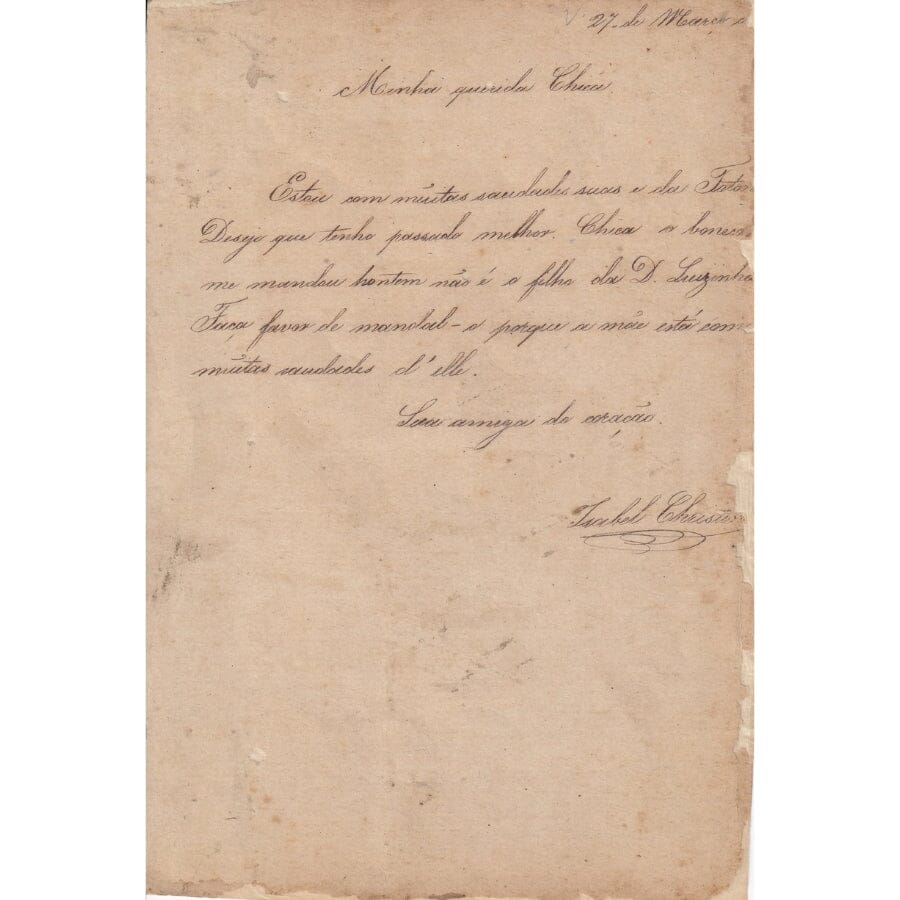 27 de Março
Minha querida Chica
Estou com muitas saudades suas e da
Desejo que tenha passado melhor. Chica o
me mandou hontem não é o filho da D. Luizinha
Faça favor de mandal-o porque a mãe está com
muitas saudades d'elle.
Sua amiga do coração.
Isabel